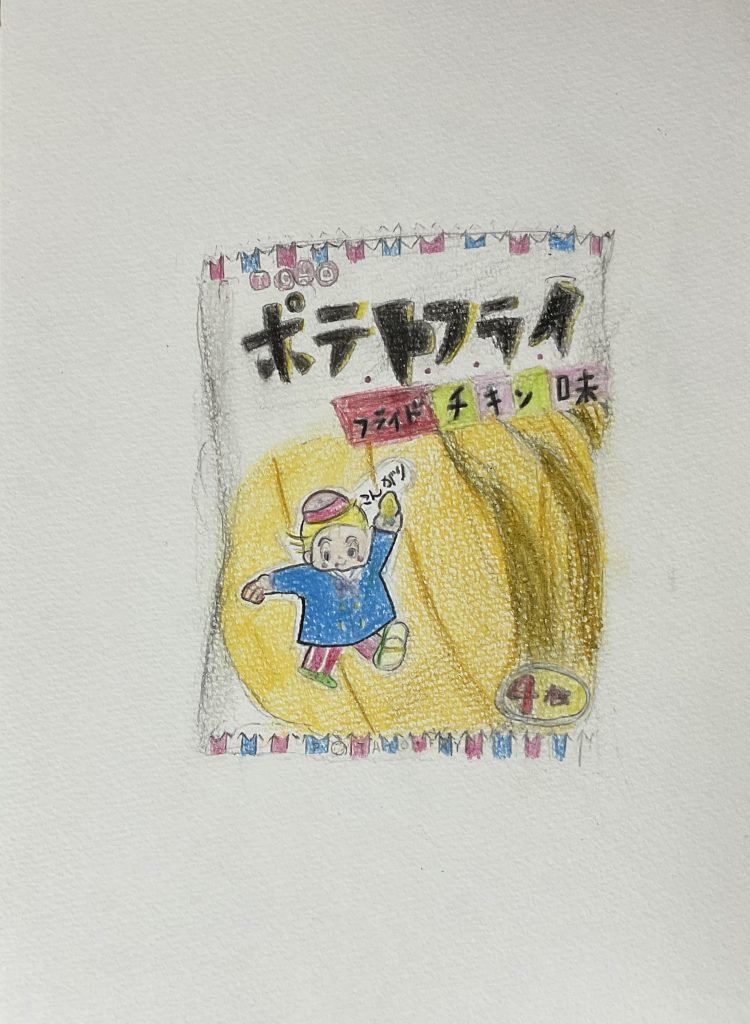 TOHO
ポテトフライ
フライドチキン味
こんがり
4枚
POTATO FRY